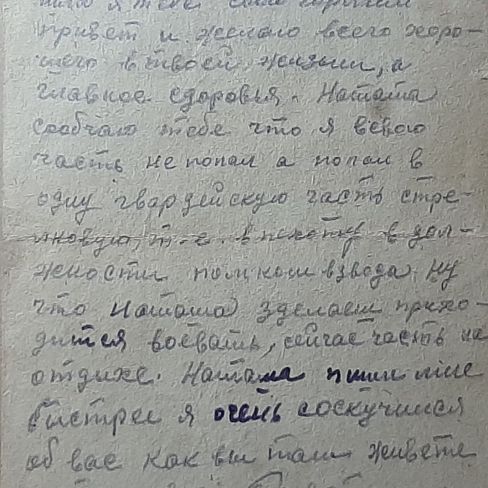 я тебе свой горячий
привет и желаю всего хоро-
шего в твоей жизни, а
главное здоровья. Наташа
сообчаю тебе что я всвою
часть не попал а попал в
одну гвардейскую часть стре-
лковую, т.е. в пехоту в дол-
жности помком взвода ну
что Наташа зделаеш прихо-
дится воевать, сейчас часть на
отдихе. Наташа пиши мне
быстрее я очень соскучился
об вас как вы там живете